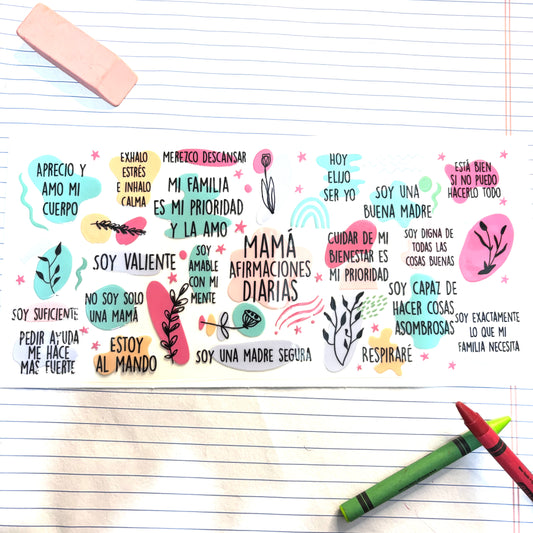 APRECIO Y
AMO MI
CUERPO
EXHALO
ESTRÉS
E INHALO
CALMA
MEREZCO DESCANSAR
MI FAMILIA
ES MI PRIORIDAD
Y LA AMO
HOY
ELIJO
SER YO
SOY UNA
BUENA MADRE
ESTÁ BIEN
SI NO PUEDO
HACERLO TODO
SOY VALIENTE
SOY
AMABLE
CON MI
MENTE
MAMÁ
AFIRMACIONES
DIARIAS
CUIDAR DE MI
BIENESTAR ES
MI PRIORIDAD
SOY DIGNA DE
TODAS LAS
COSAS BUENAS
NO SOY SOLO
UNA MAMÁ
SOY CAPAZ DE
HACER COSAS
ASOMBROSAS
SOY SUFICIENTE
PEDIR AYUDA
ME HACE
MÁS FUERTE
ESTOY
AL MANDO
SOY UNA MADRE SEGURA
RESPIRARÉ
SOY EXACTAMENTE
LO QUE MI
FAMILIA NECESITA